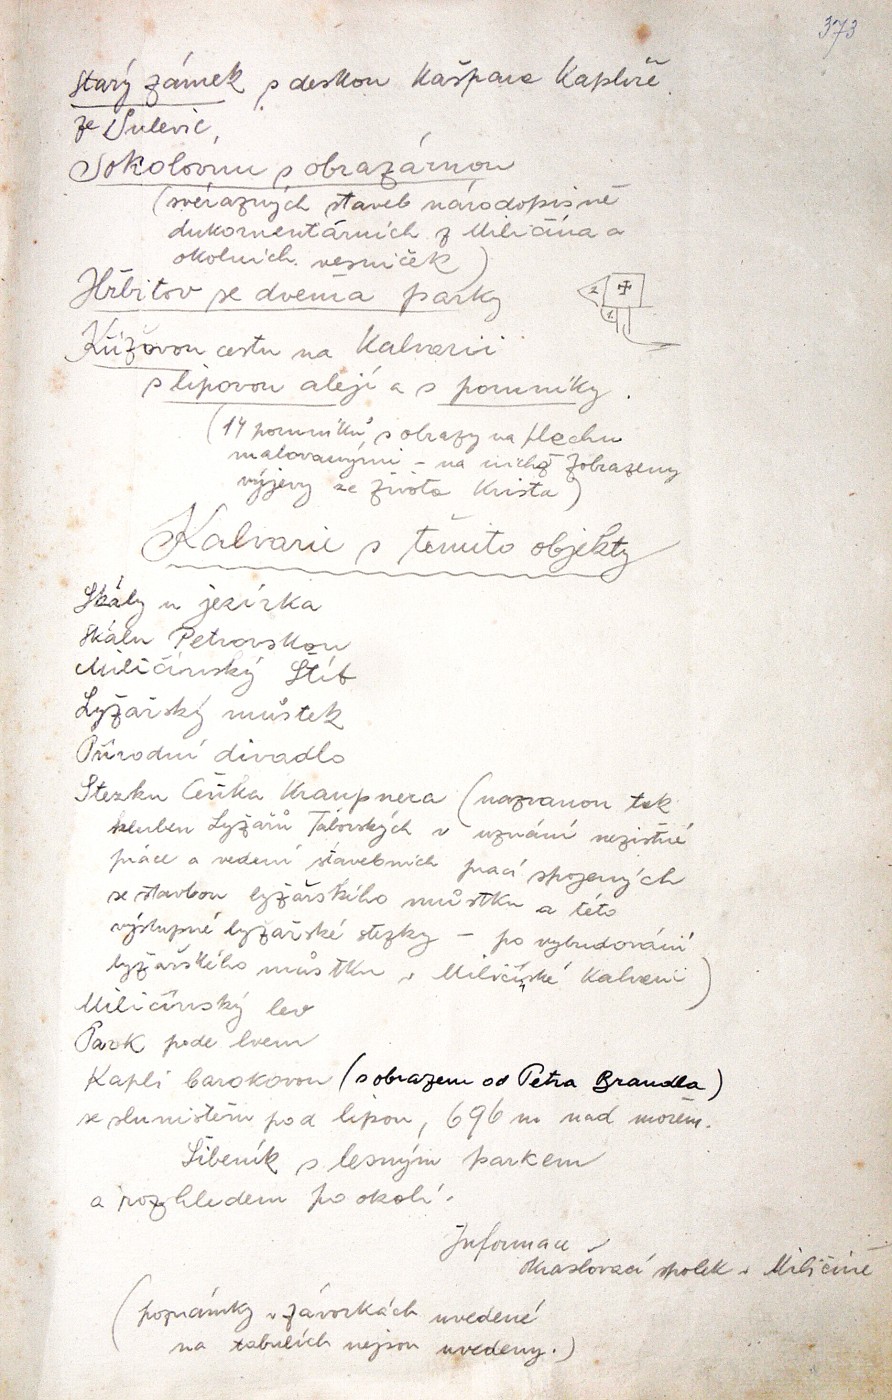 373
Starý zámek s deskou Kašpara Kaplíře
ze Sulevic,
Sokolovnu s obrazárnou
(svérázných staveb národopisně
dokumentárních z Miličína a
okolních vesniček)
Hřbitov se dvěma parky
2. 1.
Křížovou cestu na Kalvarii
s lipovou alejí a s pomníky.
(14 pomníků s obrazy na plechu
malovanými – na nichž zobrazeny
výjevy ze života Krista)
Kalvarie s těmito objekty
Skály u jezírka
Skálu Petrovskou
Miličínský Štít
Lyžařský můstek
Přírodní divadlo
Stezku Čeňka Kraupnera (nazvanou tak
klubem Lyžařů Táborských v uznání nezištné
práce a vedení stavebních prací spojených
se stavbou lyžařského můstku a této
výstupné lyžařské stezky – po vybudování
lyžařského můstku v Miličínské Kalvarii)
Miličínský lev
Park pode lvem
Kapli barokovou (s obrazem od Petra Brandla)
se sluništěm pod lipou, 696 m nad mořem.
Šibeník s lesným parkem
a rozhledem po okolí.
Informace
Okrašlovací spolek v Miličíně
(poznámky v závorkách uvedené
na tabulích nejsou uvedeny.)